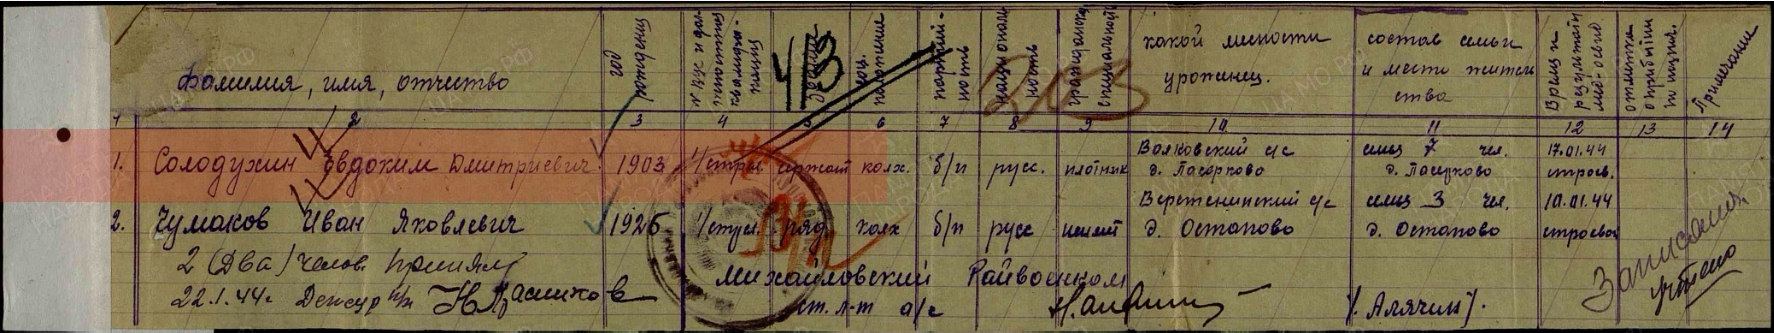 фамилия, имя, отчество год рождения № вус и должность квалификация звание соц. положение партийность национальность гражданская специальность какой местности уроженец. состав семьи и место жительства Время и результат мед-освид отметка о прибытии Примечание
4/3
203
1 2 3 4 5 6 7 8 9 10 11 12 13 14
1. Солодухин Евдоким Дмитриевич 1903 1/стрел. сержант колх. б/п русс. плотник Волковский с/с д. Пасерково семья 7 чел. д. Пасерково 17.01.44 строев.
2. Чумаков Иван Яковлевич 1926 1/стрел. ряд колх б/п русс неимеет Вертенинский с/с д. Остапово семья 3 чел. д. Остапово 10.01.44 строевой
2 (Два) челов. принял
22.1.44г Дежур п/п
Михайловский Райвоенком
ст. л-т а/с /. Алячин/.
Записаны
учтено